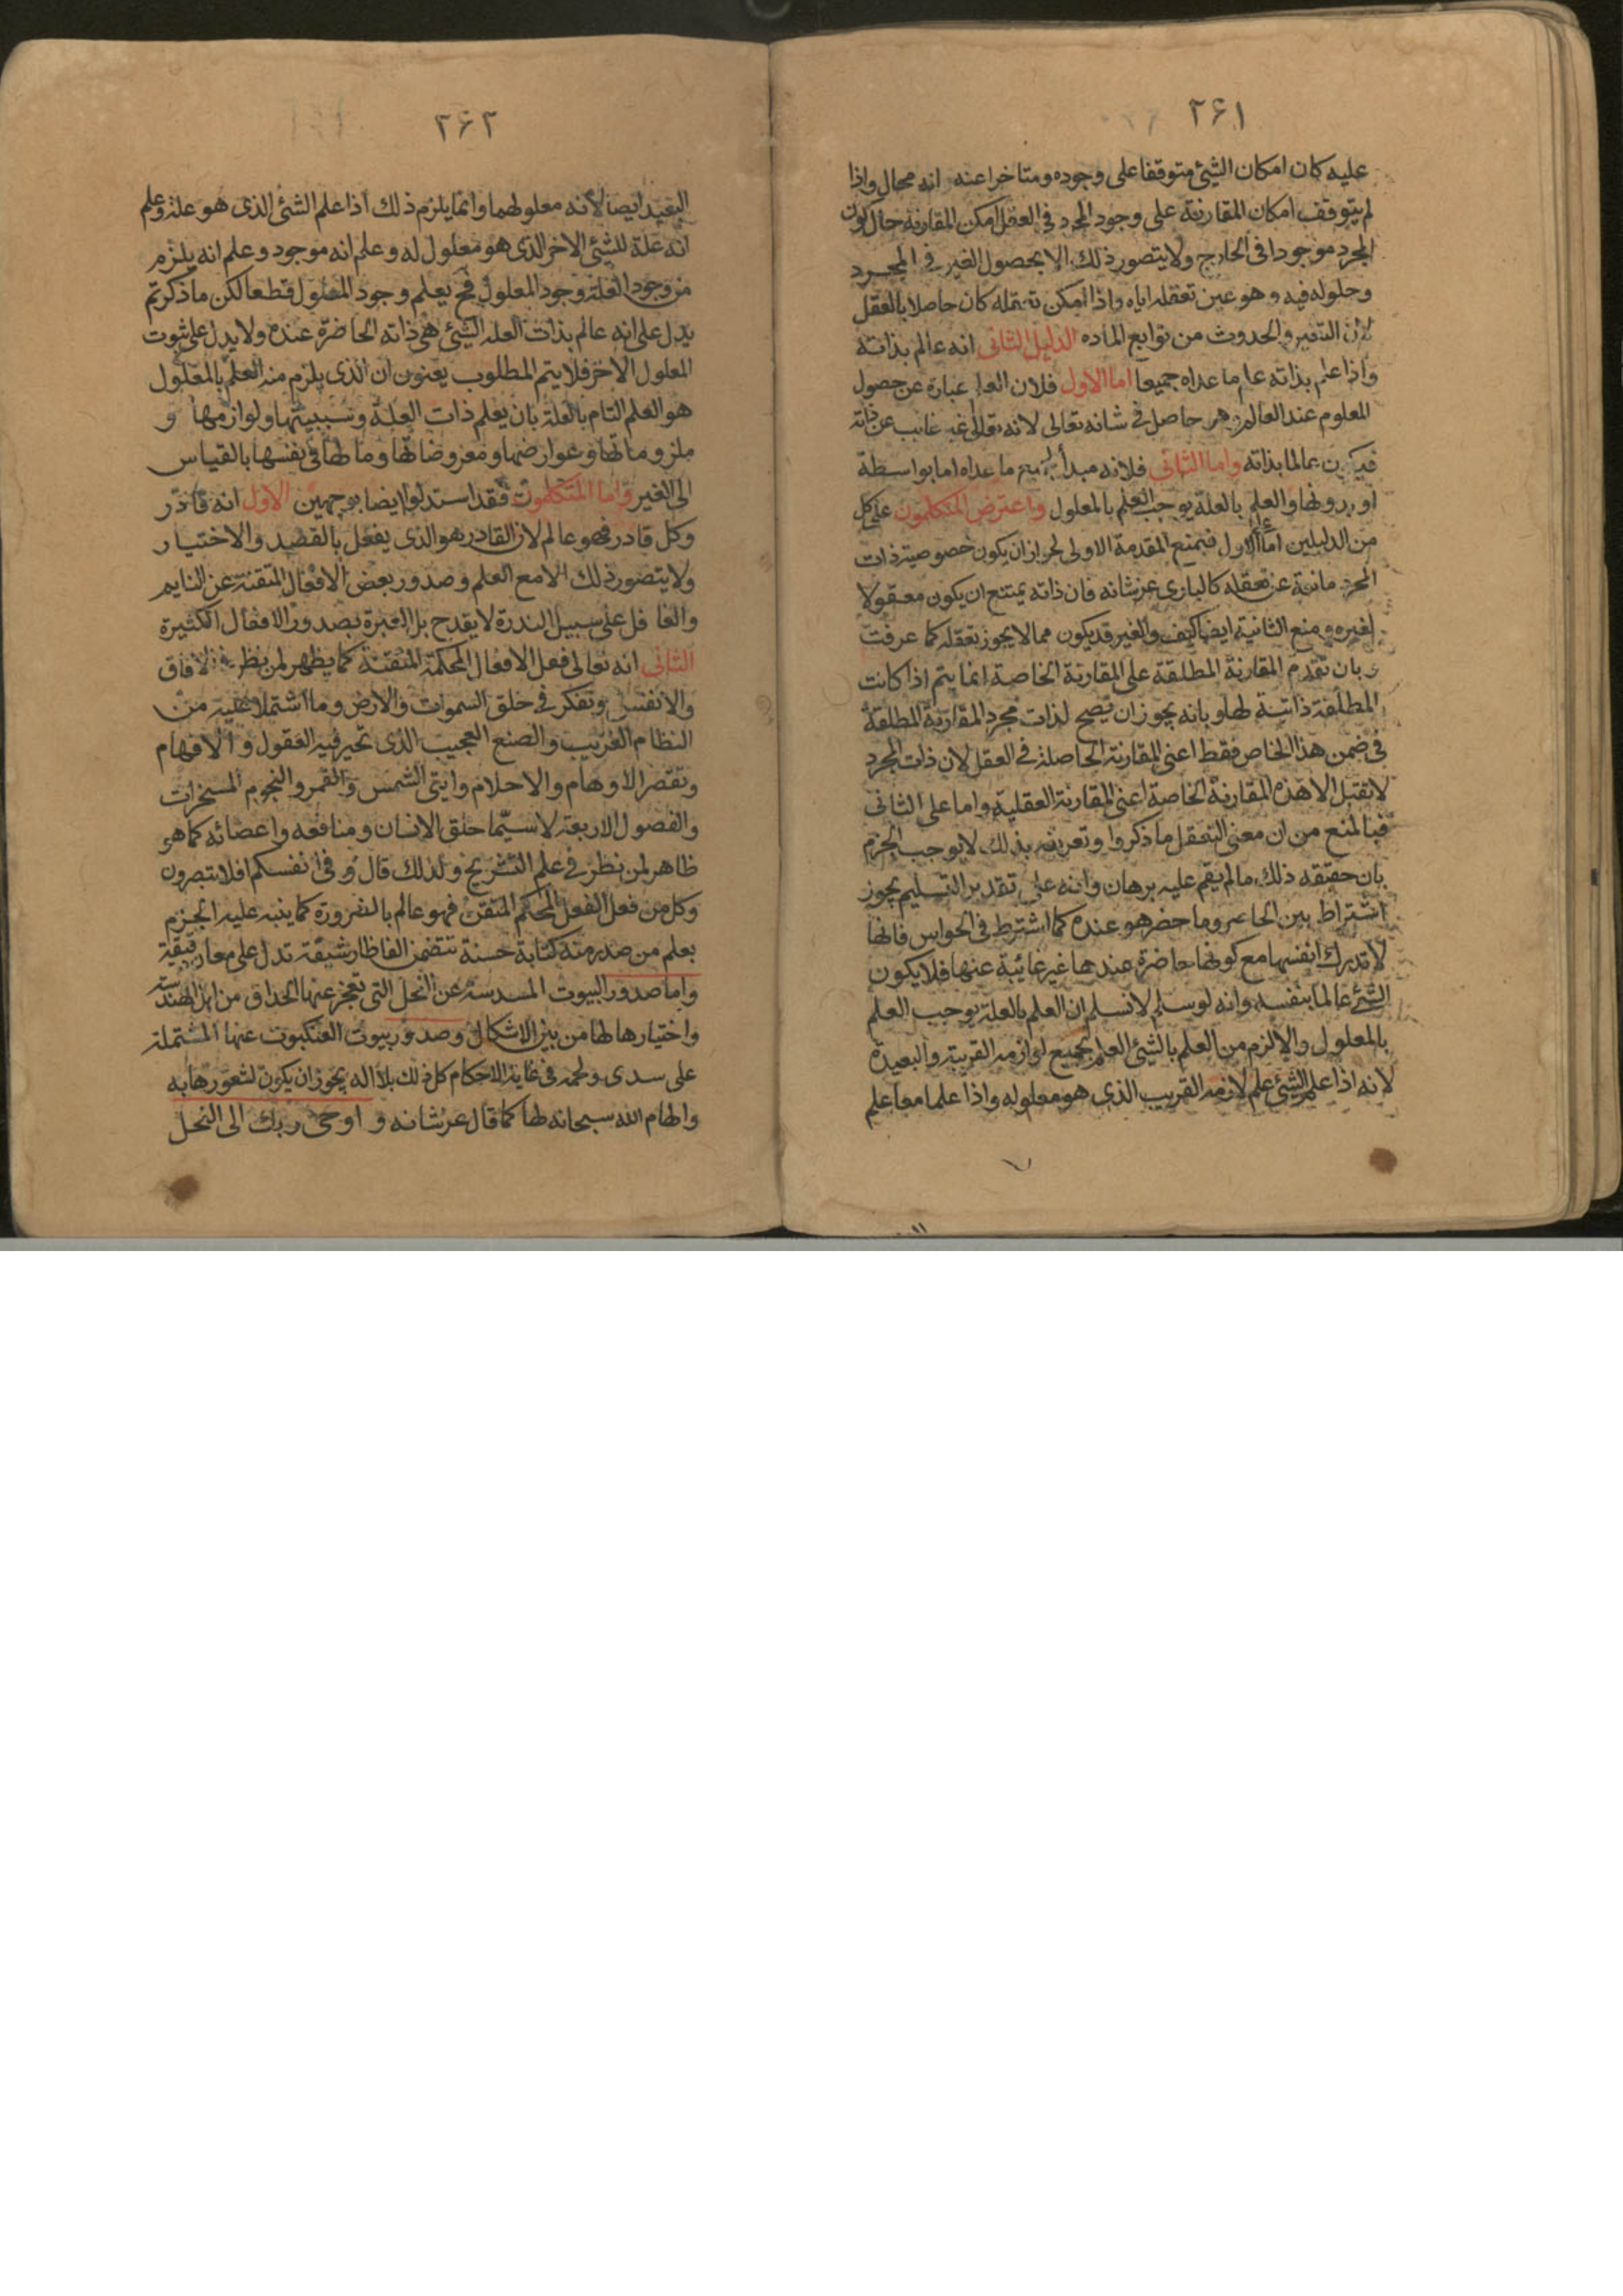 ٢۶١
عليه كان امكان الشيئ متوقفا على وجوده ومتاخرا عنه انه محال واذا
لم يتوقف امكان المقارنة على وجود المجرد فى العقل امكن المقارنة حال كون
المجرد موجودا فى الخارج ولا يتصور ذلك الا بحصول الغير فى المجرد
وحلوله فيه وهو عين تعقله اياه واذا امكن تعقله كان حاصلا بالعقل
لان التغير والحدوث من توابع الماده الدليل الثانى انه عالم بذاته
واذا علم بذاته علم ما عداه جميعا اما الاول فلان العلم عبارة عن حصول
المعلوم عند العالم وهو حاصل فى شانه تعالى لانه تعالى غير غائب عن ذاته
فيكون عالما بذاته واما الثانى فلانه مبدأ لجميع ما عداه اما بواسطة
او بدونها والعلم بالعلة يوجب العلم بالمعلول واعترض المتكلمون على كل
من الدليلين اما على الاول فبمنع المقدمة الاولى لجواز ان يكون خصوصية ذات
المجرد مانعة عن تعقله كالبارى عز شانه فان ذاته يمتنع ان يكون معقولا
لغيره ومنع الثانية ايضا كيف والغير قد يكون مما لا يجوز تعقله كما عرفت
وبان تقدم المقارنة المطلقة على المقارنة الخاصة انما يتم اذا كانت
المطلقة ذاتية لها وبانه يجوز ان تصح لذات مجرد المقارنة المطلقة
فى ضمن هذا الخاص فقط اعنى المقارنة الحاصلة فى العقل لان ذات المجرد
لا تقبل الا هذه المقارنة الخاصة اعنى المقارنة العقلية واما على الثانى
فبالمنع من ان معنى التعقل ما ذكروا وتعريفه بذلك لا يوجب الجزم
بان حقيقه ذلك ما لم يقم عليه برهان وانه على تقدير التسليم يجوز
اشتراط بين الحاضر وما حضر هو عنده كما اشترط فى الحواس فانها
لا تدرك انفسها مع كونها حاضرة عندها غير غائبة عنها فلا يكون
الشئ عالما بنفسه وانه لو سلم لا نسلم ان العلم بالعلة يوجب العلم
بالمعلول والا لزم من العلم بالشئ العلم بجميع لوازمه القريبة والبعيدة
لانه اذا علم الشئ علم لازمه القريب الذى هو معلوله واذا علما معا علم
٢۶٢
البعيد ايضا لأنه معلولهما وانما يلزم ذلك اذا علم الشئ الذى هو علة وعلم
انه علة للشئ الاخر الذى هو معلول له وعلم انه موجود وعلم انه يلزم
من وجود العلة وجود المعلول فح يعلم وجود المعلول قطعا لكن ما ذكرتم
يدل على انه عالم بذات العلة الشئ هى ذاته الحاضرة عنده ولا يدل على ثبوت
المعلول الاخر فلا يتم المطلوب يعنون ان الذى يلزم منه العلم بالمعلول
هو العلم التام بالعلة بان يعلم ذات العلة وسببيتها ولوازمها و
ملزوماتها وعوارضها ومعروضاتها وما لها فى نفسها بالقياس
الى الغير واما المتكلمون فقد استدلوا ايضا بوجهين الاول انه قادر
وكل قادر فهو عالم لان القادر هو الذى يفعل بالقصد والاختيار
ولا يتصور ذلك الا مع العلم وصدور بعض الافعال المتقنة عن النايم
والغافل على سبيل الندرة لا يقدح بل العبرة بصدور الافعال الكثيرة
الثانى انه تعالى فعل الافعال المحكمة المتقنة كما يظهر لمن نظر فى الافاق
والانفس وتفكر فى خلق السموات والارض وما اشتملا عليه من
النظام الغريب والصنع العجيب الذى تحير فيه العقول والافهام
وتقصر الاوهام والاحلام وانى الشمس والقمر والنجوم المسخرات
والفصول الاربعة لا سيما خلق الانسان ومنافعه واعضائه كما هو
ظاهر لمن نظر فى علم التشريح ولذلك قال وفى انفسكم افلا تبصرون
وكل من فعل الفعل المحكم المتقن فهو عالم بالضرورة كما ينبه عليه الجزم
بعلم من صدر منه كتابة حسنة تتضمن الفاظا رشيقة تدل على معان دقيقة
واما صدور البيوت المسدسة عن النحل التى تعجز عنها الحذاق من اهل الهندسة
واختيارها لها من بين الاشكال وصدور بيوت العنكبوت عنها المشتملة
على سدى ولحمة فى غاية الاحكام كل ذلك بلا اله يجوز ان يكون لشعورها به
والهام الله سبحانه لها كما قال عز شانه و اوحى ربك الى النحل